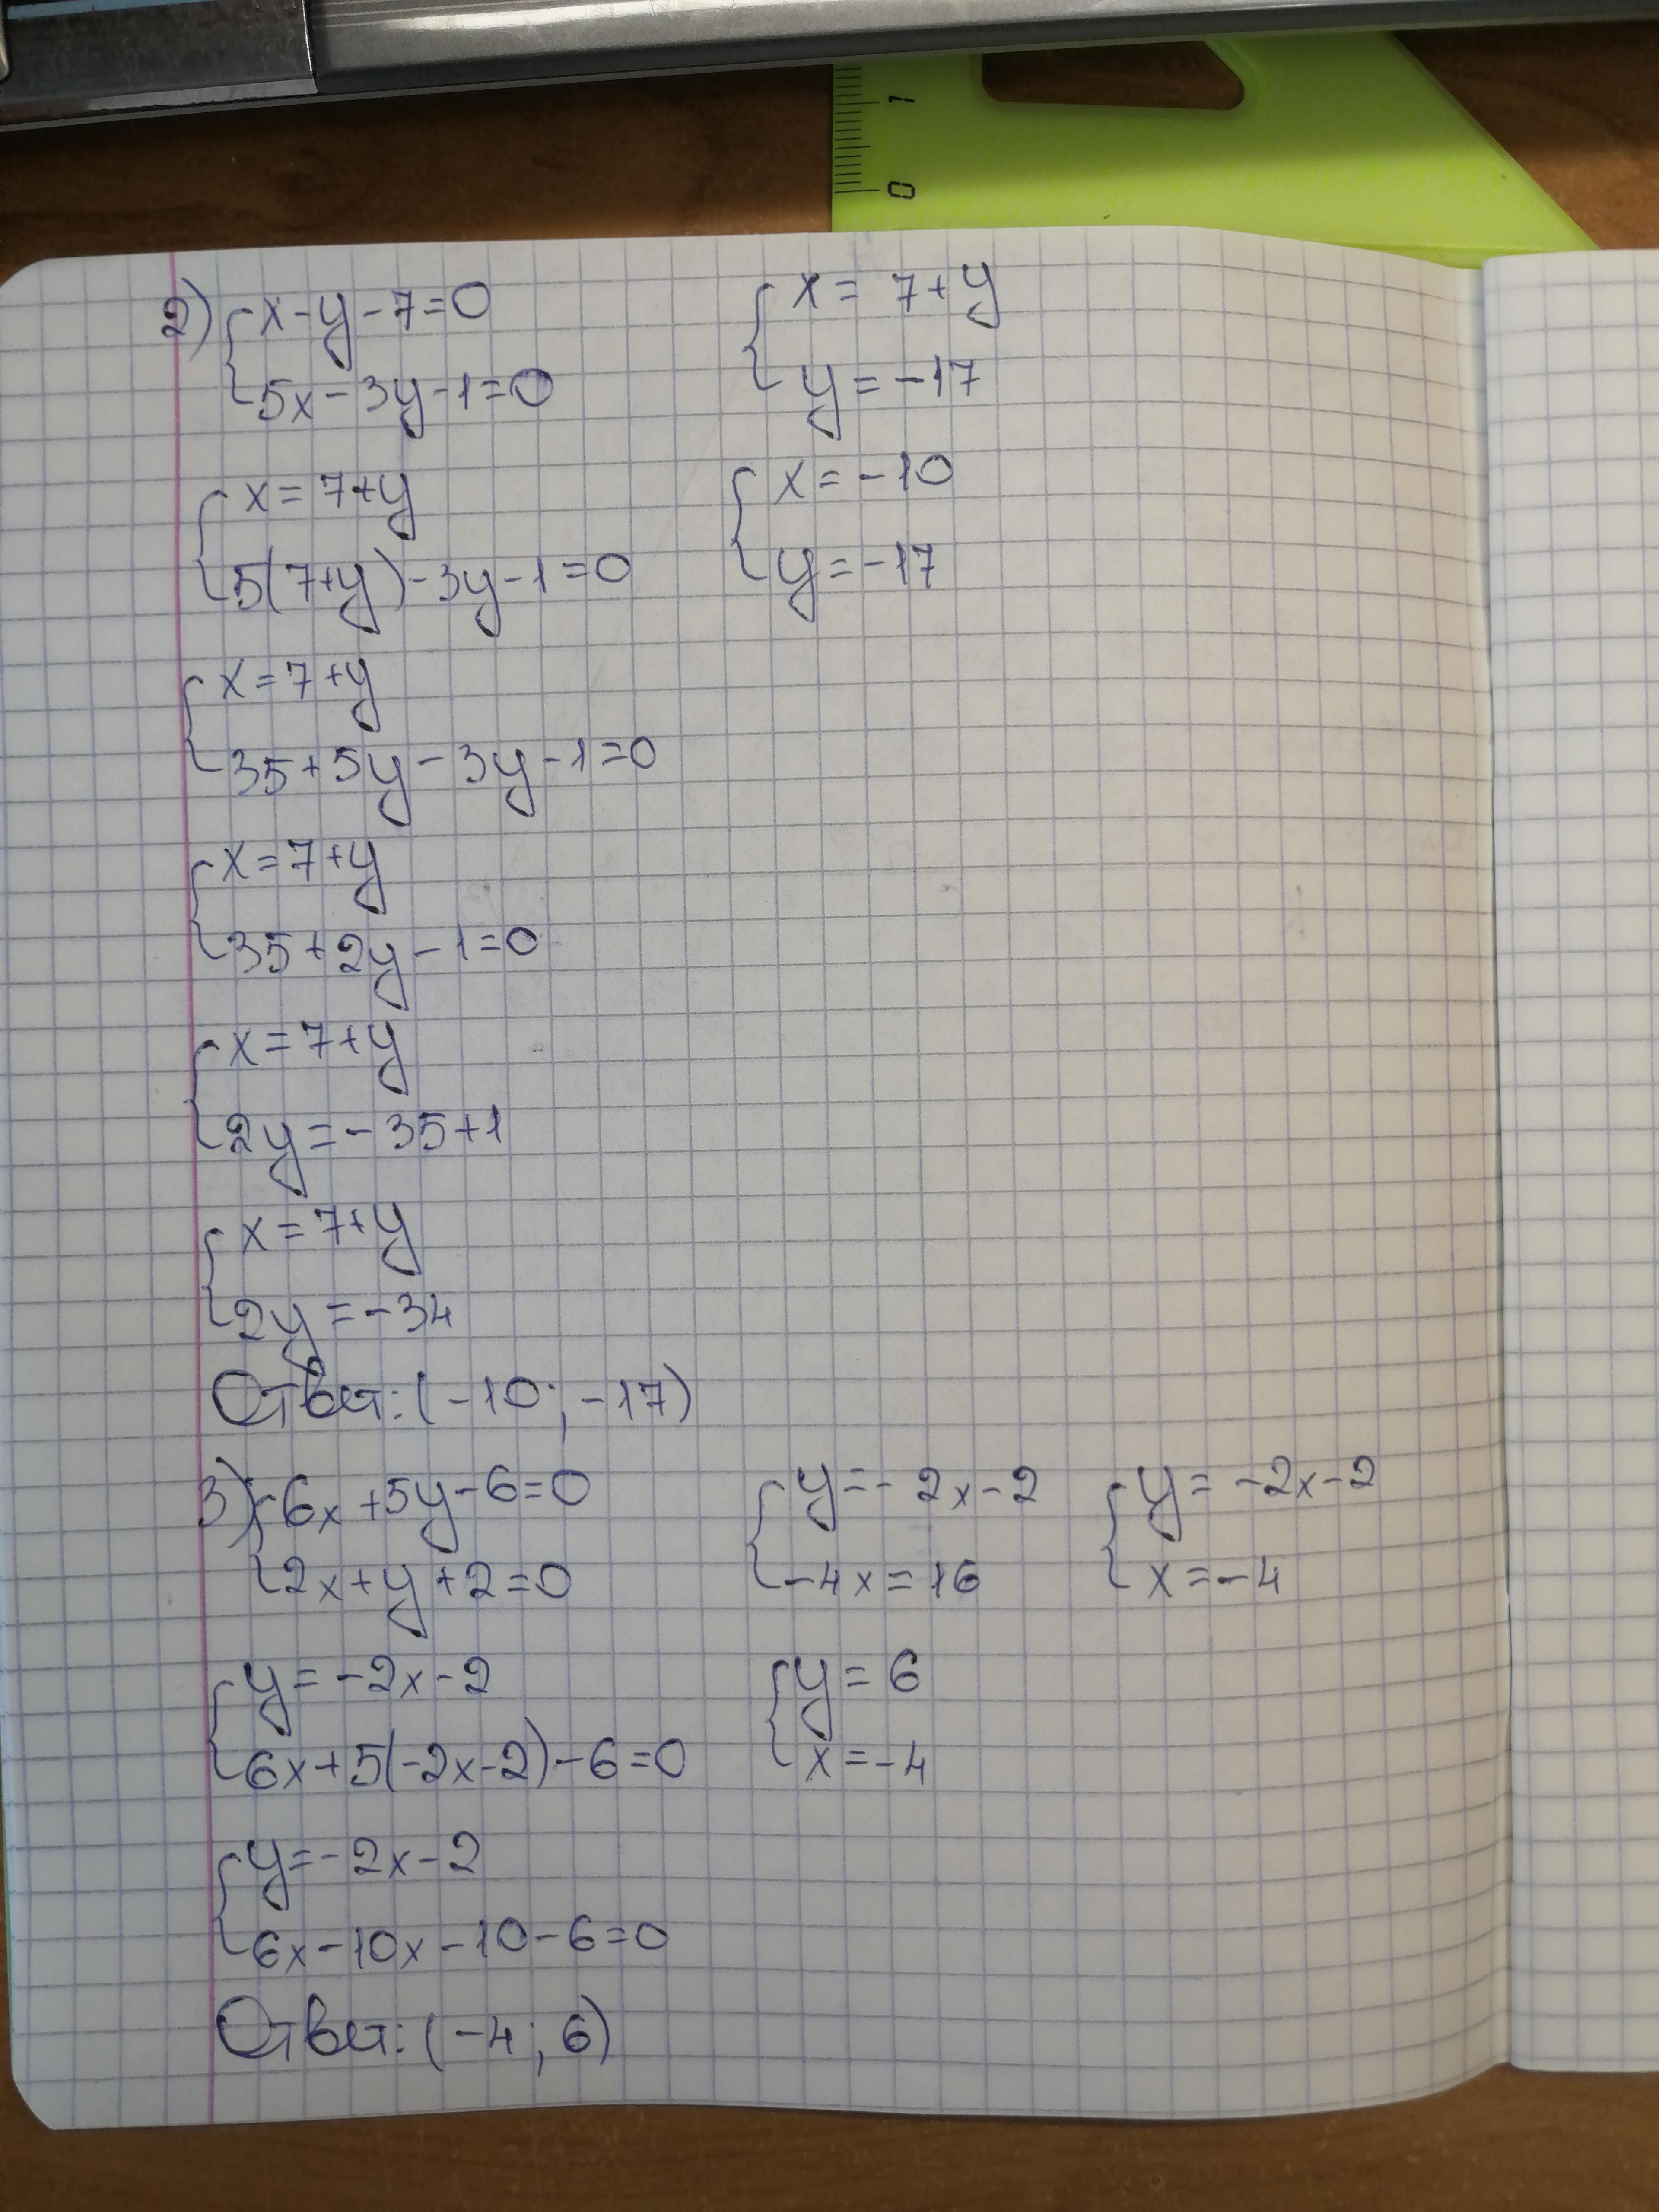 1
0
2) { x-y-7=0
5x-3y-1=0
{ x=7+y
5(7+y)-3y-1=0
{ x=7+y
35+5y-3y-1=0
{ x=7+y
35+2y-1=0
{ x=7+y
2y=-35+1
{ x=7+y
2y=-34
{ x=7+y
y=-17
{ x=-10
y=-17
Ответ: (-10; -17)
3) { 6x+5y-6=0
2x+y+2=0
{ y=-2x-2
6x+5(-2x-2)-6=0
{ y=-2x-2
6x-10x-10-6=0
{ y=-2x-2
-4x=16
{ y=-2x-2
x=-4
{ y=6
x=-4
Ответ: (-4; 6)